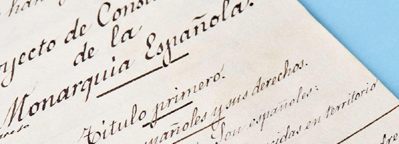 yecto de Consti
de la
Monarquia Española.
Título primero.
pañoles y sus derechos.
Son españoles:
idas en territorio